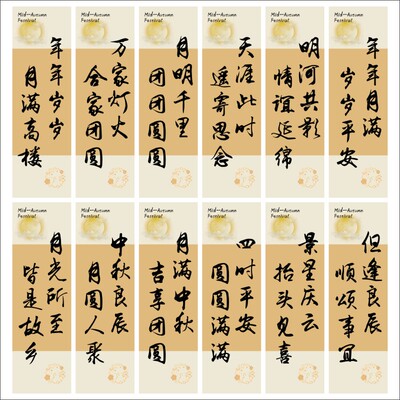 Mid-Autumn
Festival
年年岁岁
月满高楼
Mid-Autumn
Festival
万家灯火
合家团圆
Mid-Autumn
Festival
月明千里
团团圆圆
Mid-Autumn
Festival
天涯此时
遥寄思念
Mid-Autumn
Festival
明河共影
情谊延绵
Mid-Autumn
Festival
年年月满
岁岁平安
Mid-Autumn
Festival
月光所至
皆是故乡
Mid-Autumn
Festival
中秋良辰
月圆人聚
Mid-Autumn
Festival
月满中秋
吉享团圆
Mid-Autumn
Festival
四时平安
圆圆满满
Mid-Autumn
Festival
景星庆云
抬头见喜
Mid-Autumn
Festival
但逢良辰
顺颂事宜